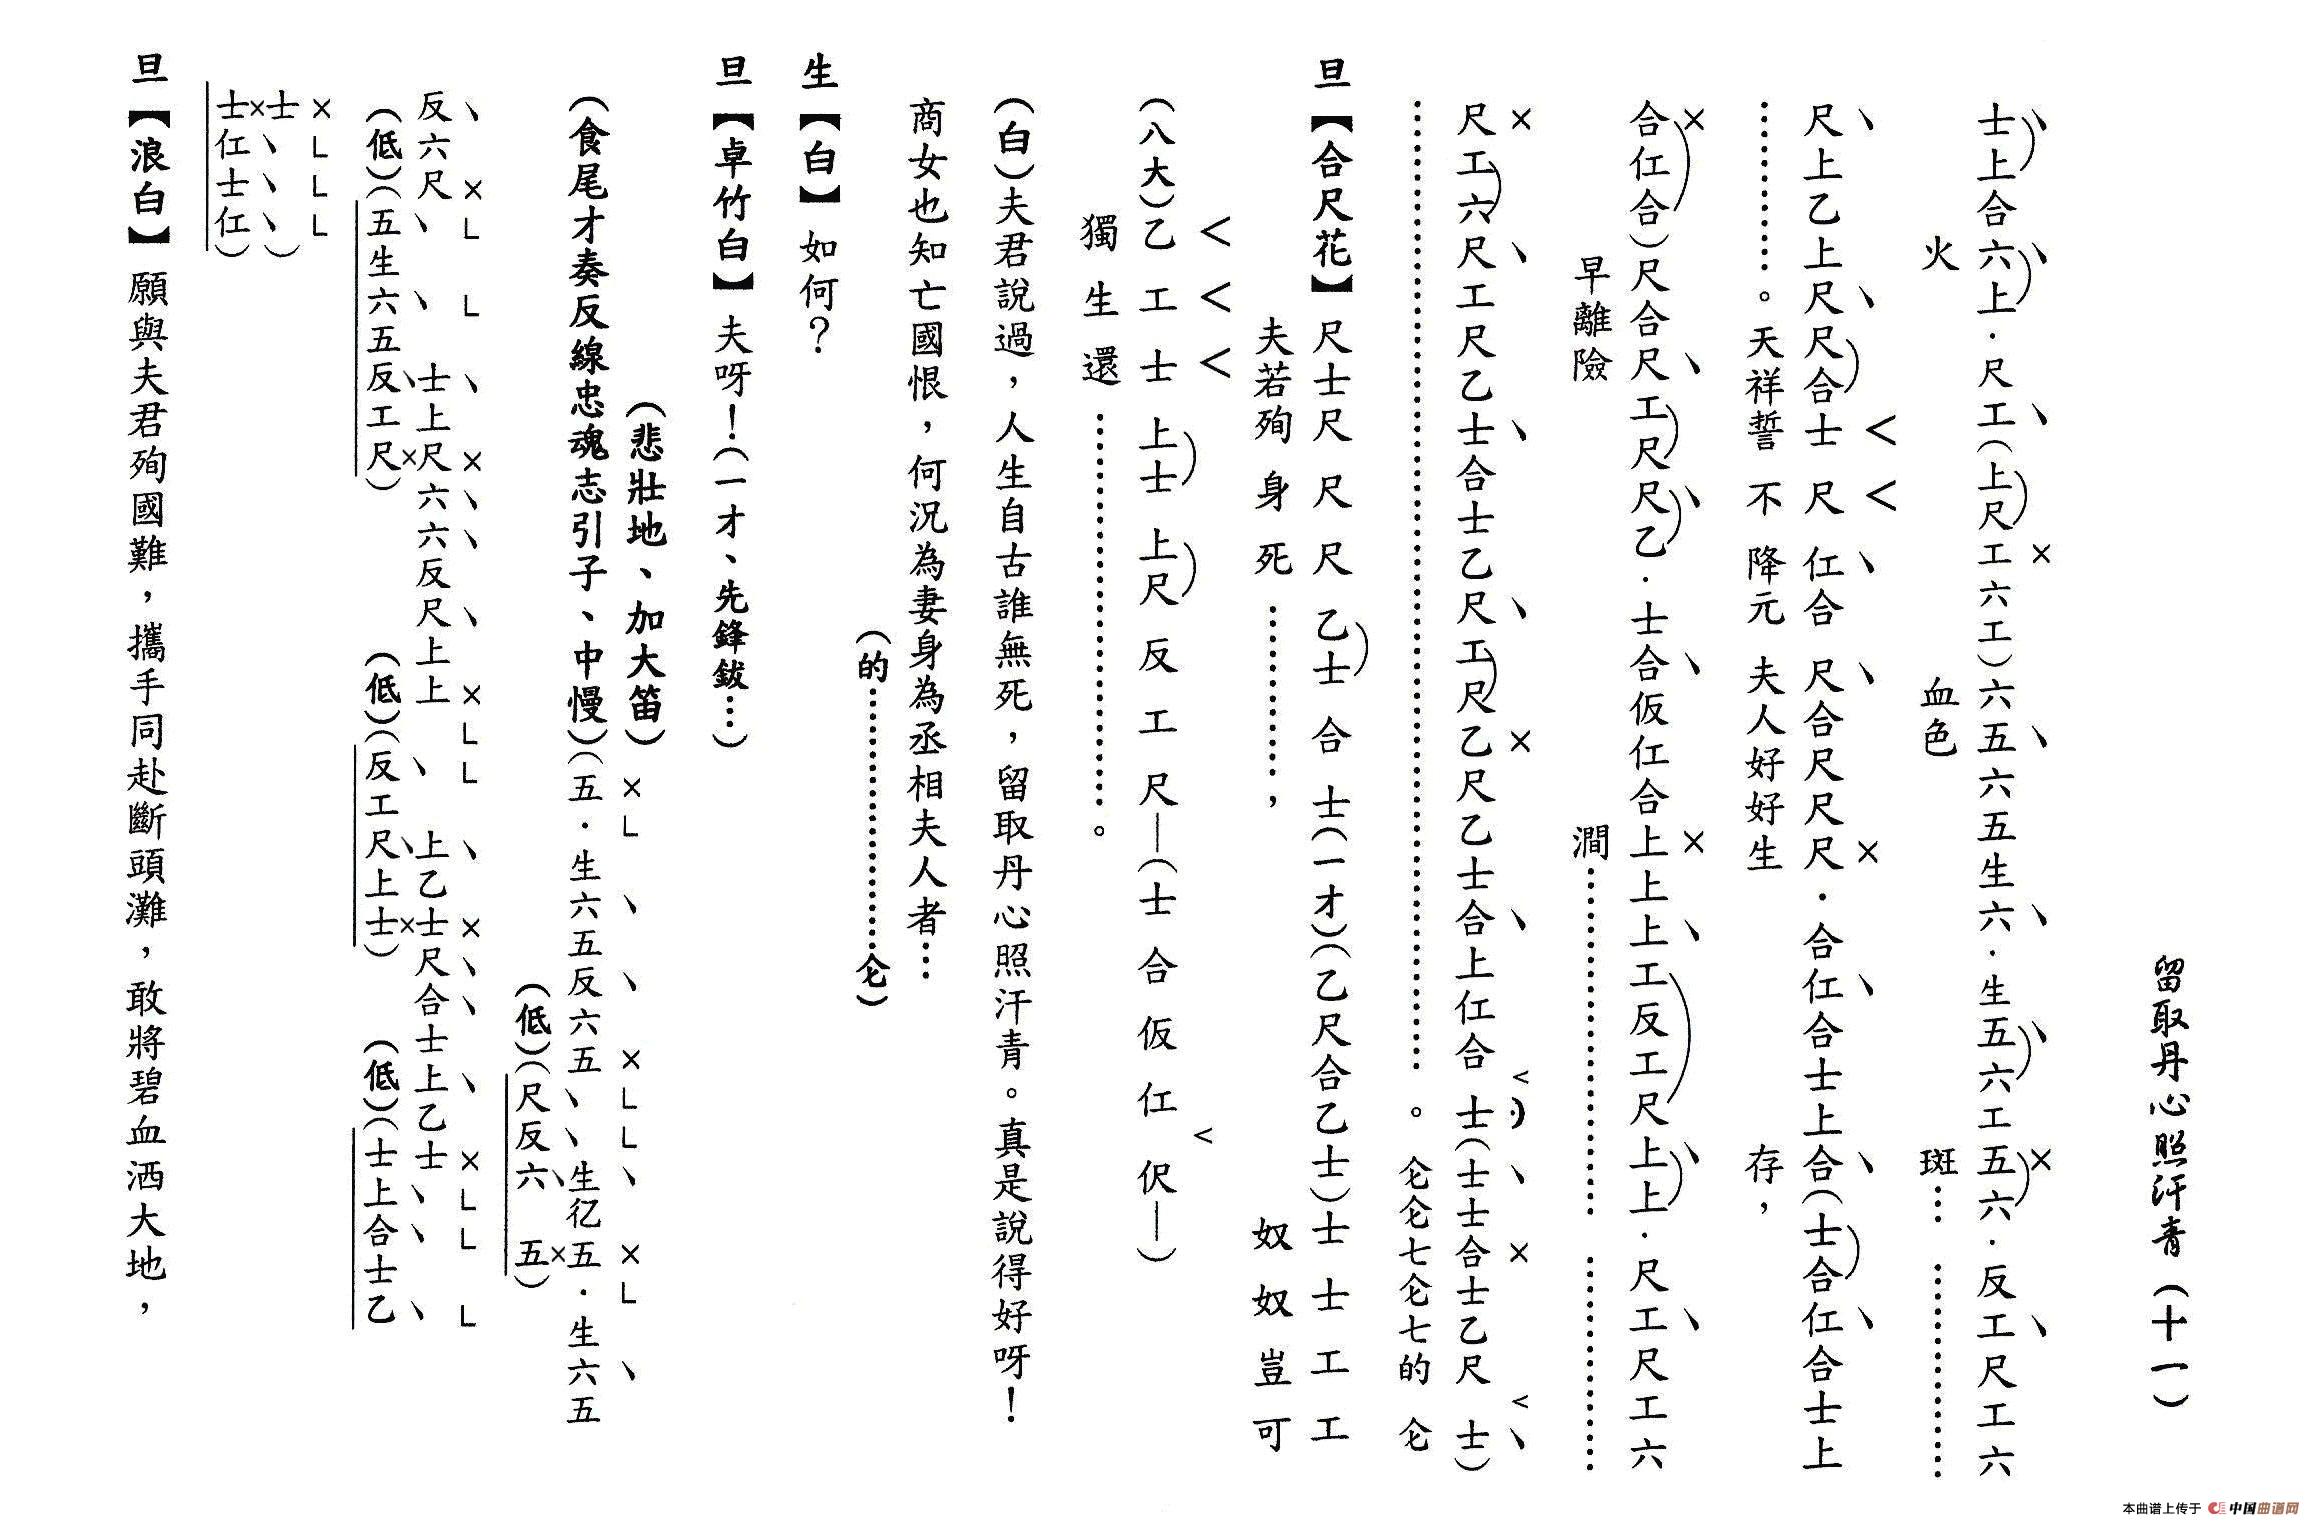 留取丹心照汗青（十一）
士上合六上·尺工（上尺工六工）六五六五生六·生五六工五六·反工尺工六
火 血色 斑… …………
尺上乙上尺尺合士尺仁合尺合尺尺尺·合仁合士上合（士合仁合士上
…………。天祥誓不降元夫人好好生 存，
合仁合）尺合尺工尺尺乙·士合仮仁合上上上工反工尺上上·尺工尺工六
早離險 澗………… …………
尺工六尺工尺乙士合士乙尺工尺乙尺乙士合上仁合士（士士合士乙尺 士）
…………。仑仑七仑七的 仑
旦【合尺花】尺士尺尺尺乙士合士（一才）（乙尺合乙士）士士工工
夫若殉身死…………， 奴奴豈可
（八大）乙工士上士上尺反工尺—（士合仮仁伬—）
獨生還…………。
（白）夫君說過，人生自古誰無死，留取丹心照汗青。真是說得好呀！
商女也知亡國恨，何況為妻身為丞相夫人者…
（的…………仑）
生【白】如何？
旦【卓竹白】夫呀！（一才、先鋒鈸…）
（悲壯地、加大笛）
（食尾才奏反線忠魂志引子、中慢）（五·生六五反六五 生亿五·生六五
（低）（尺反六 五）
反六尺 士上尺六六反尺上上 上乙士尺合士上乙士
（低）（五生六五反工尺） （低）（反工尺上士） （低）（士上合士乙
士
士仁士仁）
旦【浪白】願與夫君殉國難，攜手同赴斷頭灘，敢將碧血洒大地，
本曲谱上传于 中国曲谱网